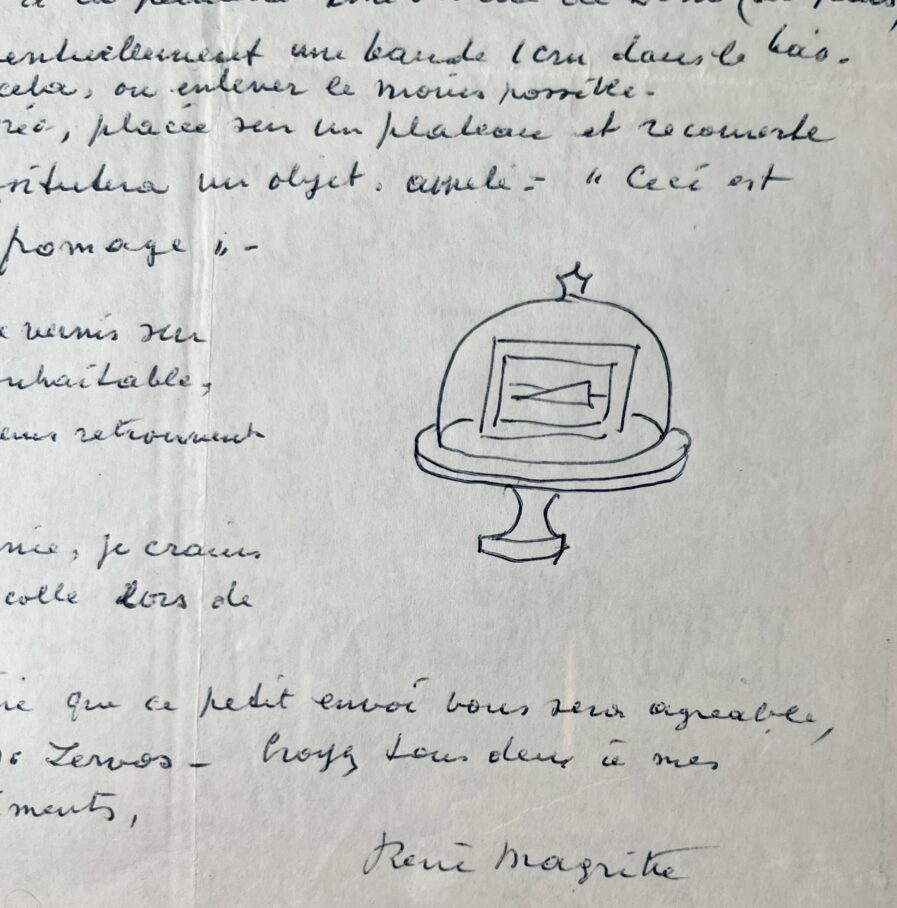 une bande 1 cm dans le bas.
cela, ou enlever le moins possible.
rée, placée sur un plateau et recouverte
stituera un objet. appelé = " Ceci est
fromage " -
e vernis sur
ouhaitable,
retrouvent
mie, je crains
colle lors de
que ce petit envoi vous sera agréable,
Zervos - Croyez tous deux à mes
ments,
René Magritte